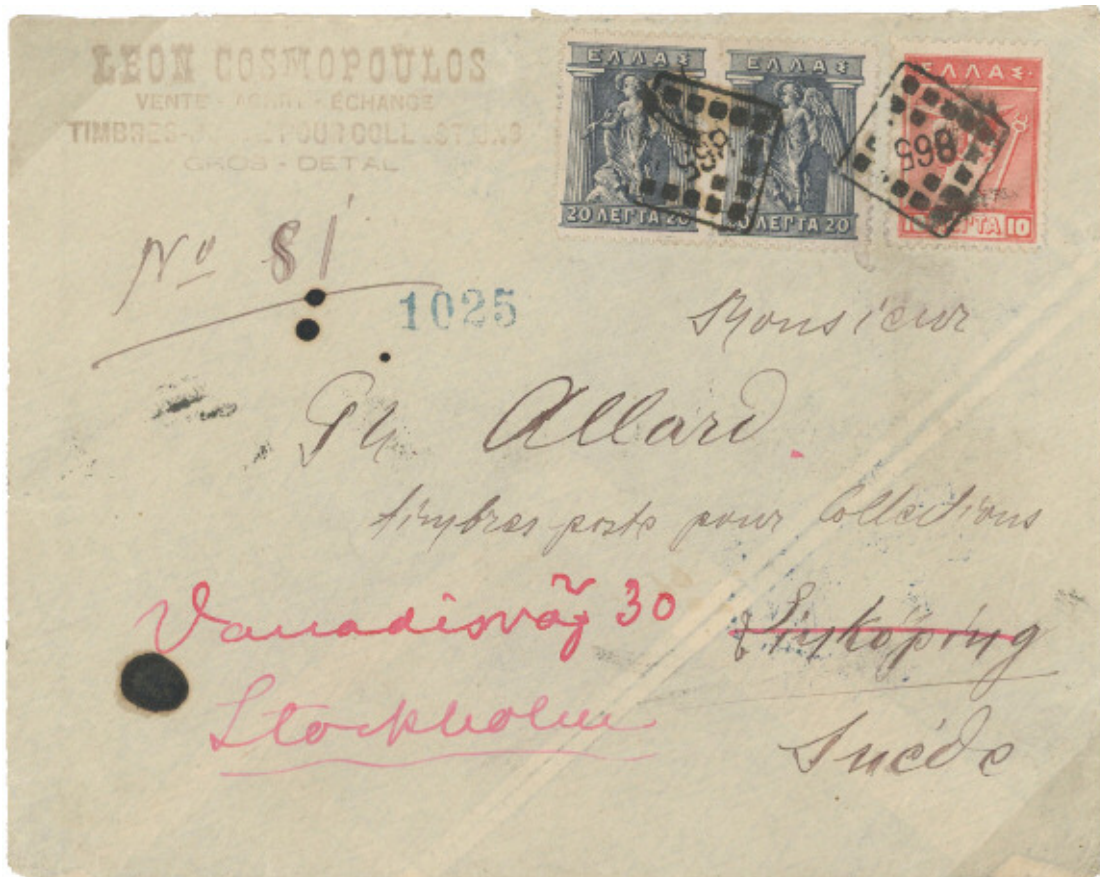 LEON COSMOPOULOS
VENTE - ACHAT - ÉCHANGE
TIMBRES- POUR COLLECTIONS
GROS - DETAL
ΕΛΛΑΣ
20 ΛΕΠΤΑ 20
ΕΛΛΑΣ
20 ΛΕΠΤΑ 20
ΕΛΛΑΣ
10 ΛΕΠΤΑ 10
865
No 81
1025
Monsieur
Ph Allard
timbres poste pour Collections
Vanadisväg 30
Linköping
Stockholm
Suéde